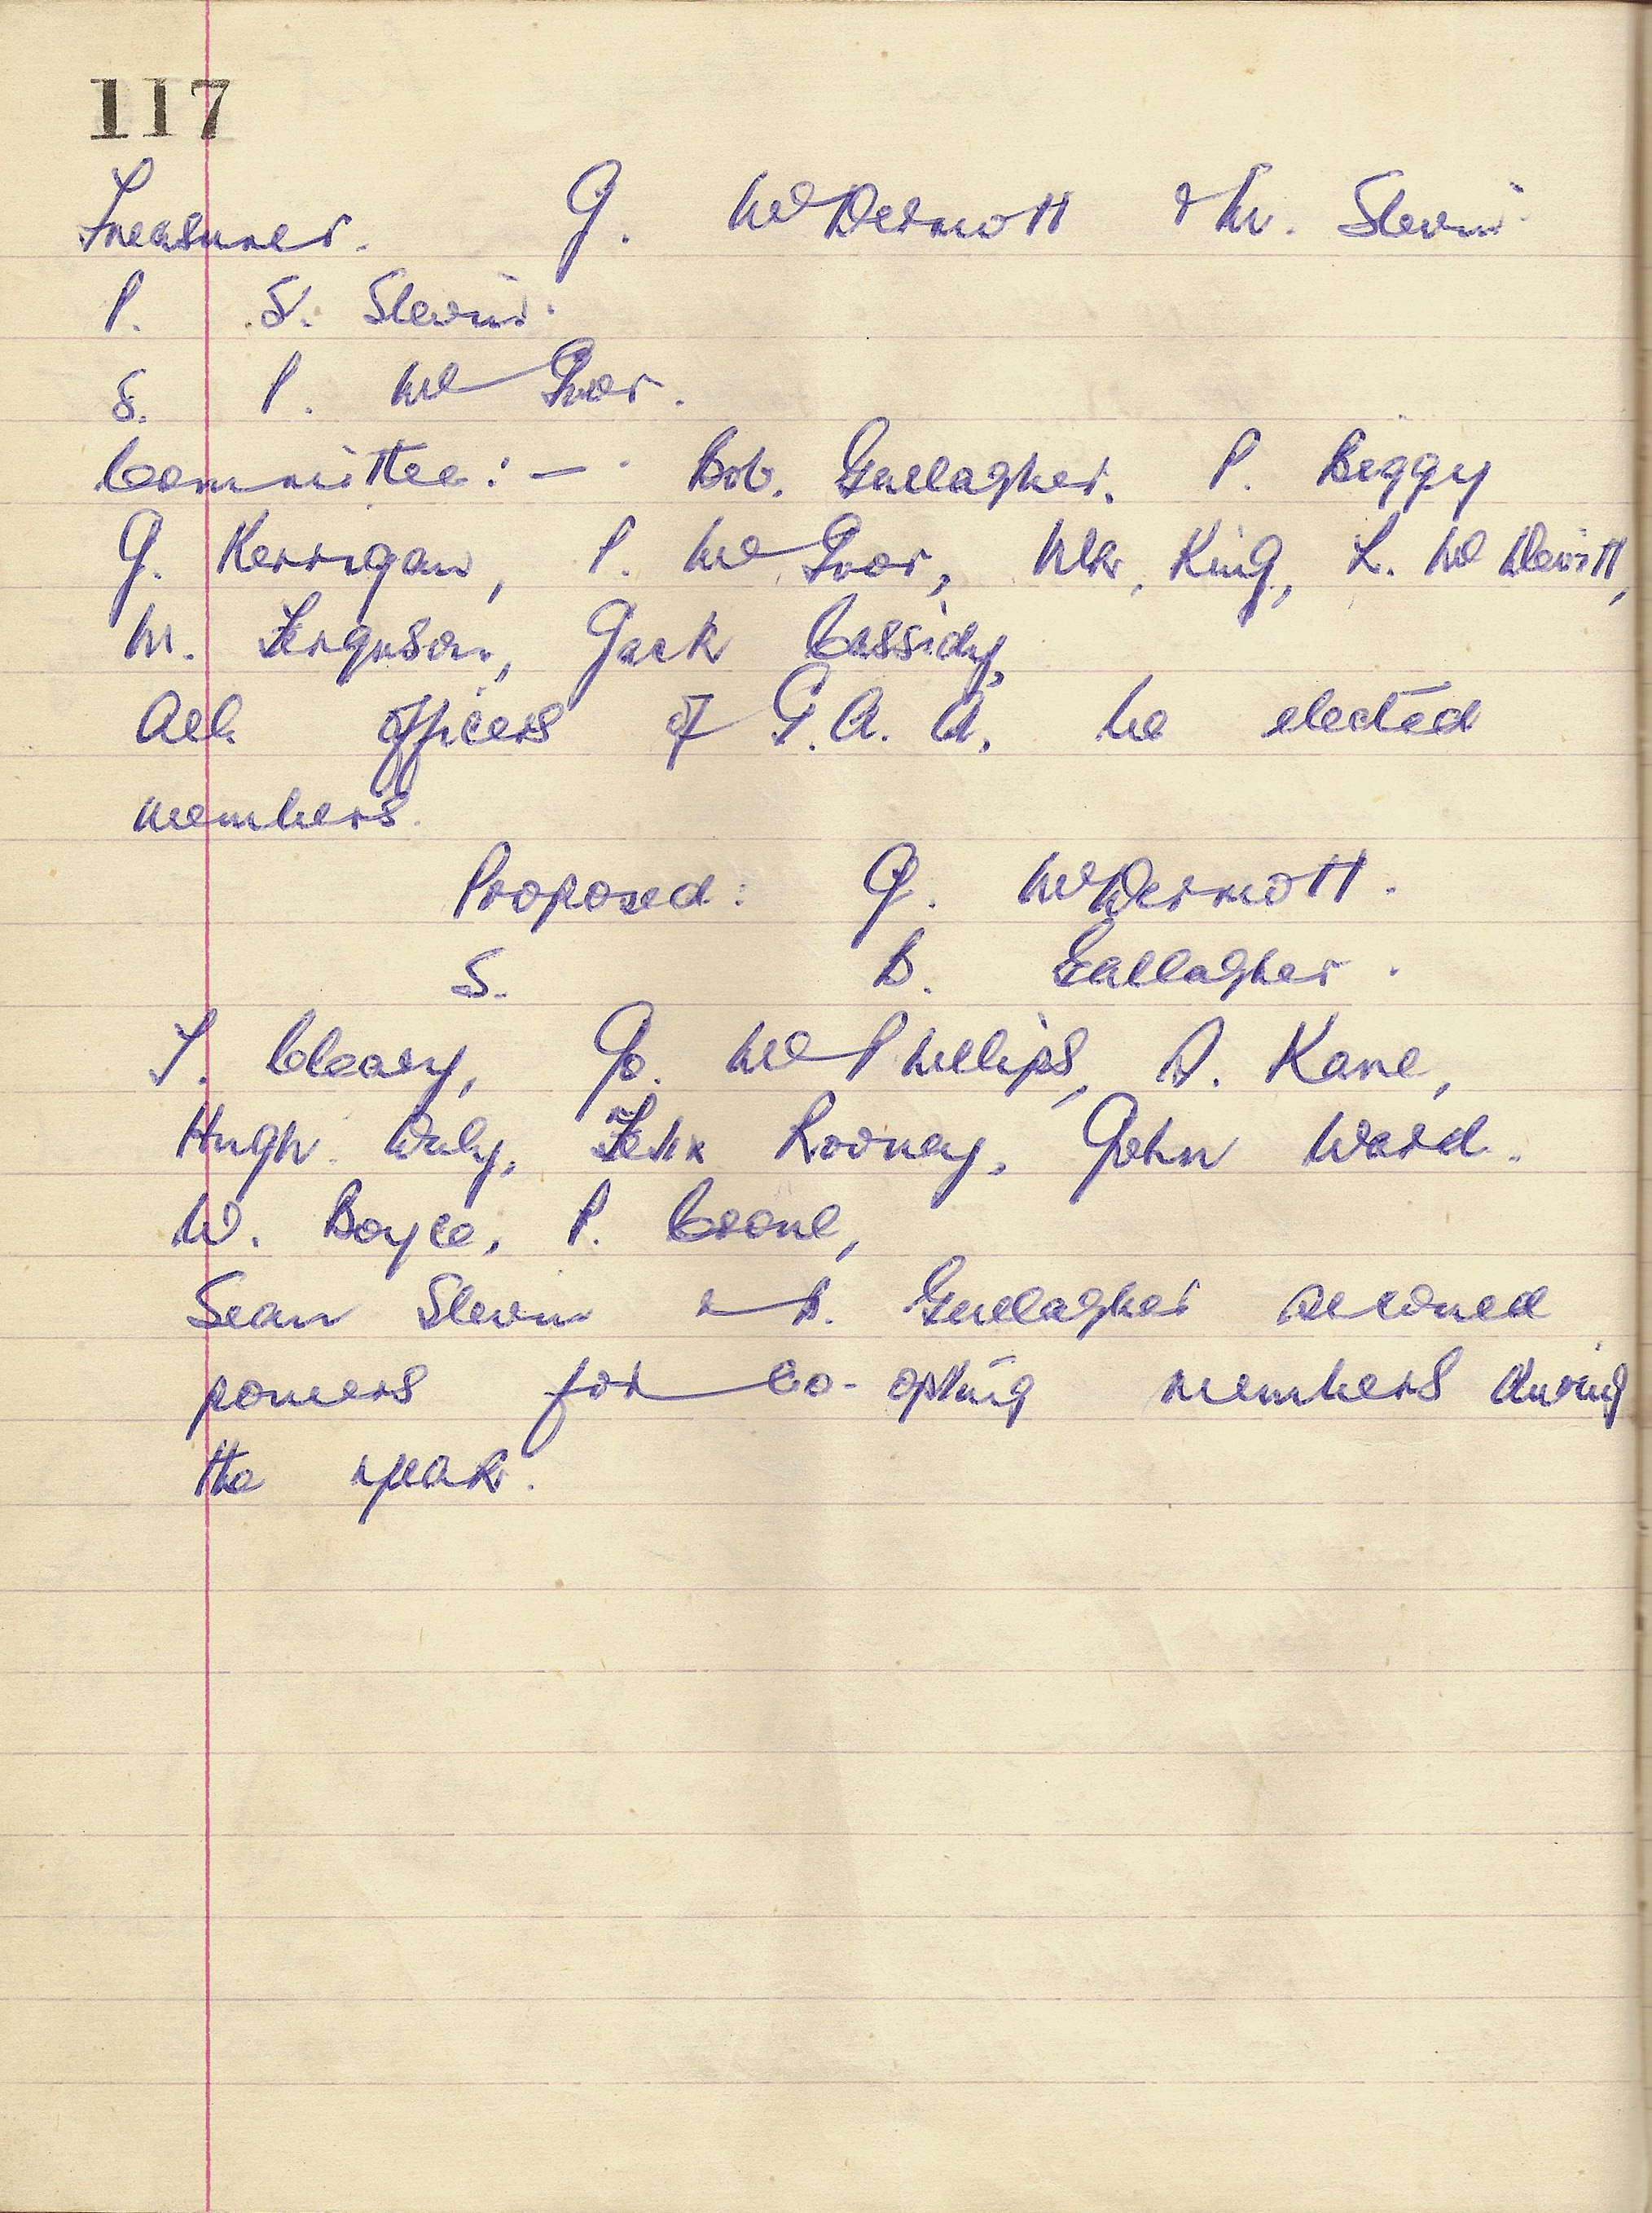 117
Treasurer. J. McDermott & M. Slevin
P. S. Slevin.
S. P. McIvor.
Committee: - Bob. Gallagher. P. Beggy
J. Kerrigan, P. McIvor, Mk. King, L. McDevitt,
M. Ferguson, Jack Cassidy,
All officers of G.A.A. be elected
members.
Proposed: J. McDermott.
S. B. Gallagher.
T. Cleary, Jo. McPhillips, D. Kane,
Hugh Daly, Felix Rooney, John Ward.
W. Boyce, P. Crone,
Sean Slevin B. Gallagher
powers for co-opting members during
the year.